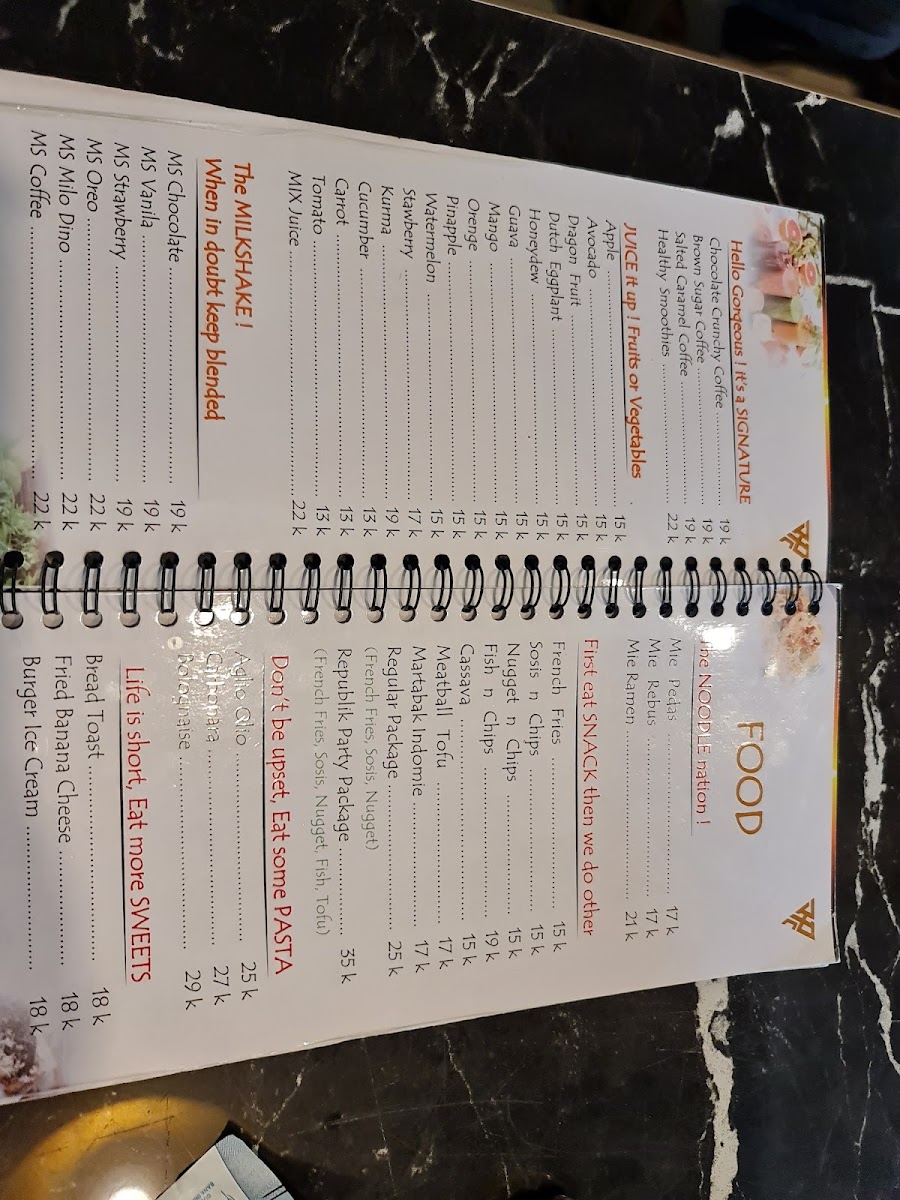 Hello Gorgeous ! it's a SIGNATURE
Chocolate Crunchy Coffee ........ 19 k
Brown Sugar Coffee ........ 19 k
Salted Caramel Coffee ........ 19 k
Healthy Smoothies ........ 22 k
JUICE it up ! Fruits or Vegetables
Apple ........ 15 k
Avocado ........ 15 k
Dragon Fruit ........ 15 k
Dutch Eggplant ........ 15 k
Honeydew ........ 15 k
Guava ........ 15 k
Mango ........ 15 k
Orenge ........ 15 k
Pinapple ........ 15 k
Watermelon ........ 15 k
Stawberry ........ 17 k
Kurma ........ 19 k
Cucumber ........ 13 k
Carrot ........ 13 k
Tomato ........ 13 k
MIX Juice ........ 22 k
The MILKSHAKE !
When in doubt keep blended
MS Chocolate ........ 19 k
MS Vanila ........ 19 k
MS Strawberry ........ 19 k
MS Oreo ........ 22 k
MS Milo Dino ........ 22 k
MS Coffee ........ 22 k
FOOD
The NOODLE nation !
Mie Pedas ........ 17 k
Mie Rebus ........ 17 k
Mie Ramen ........ 21 k
First eat SNACK then we do other
French Fries ........ 15 k
Sosis n Chips ........ 15 k
Nugget n Chips ........ 15 k
Fish n Chips ........ 19 k
Cassava ........ 15 k
Meatball Tofu ........ 17 k
Martabak Indomie ........ 17 k
Regular Package ........ 25 k
(French Fries, Sosis, Nugget)
Republik Party Package ........ 35 k
(French Fries, Sosis, Nugget, Fish, Tofu)
Don't be upset, Eat some PASTA
Aglio Olio ........ 25 k
Carbonara ........ 27 k
Bolognaise ........ 29 k
Life is short, Eat more SWEETS
Bread Toast ........ 18 k
Fried Banana Cheese ........ 18 k
Burger Ice Cream ........ 18 k